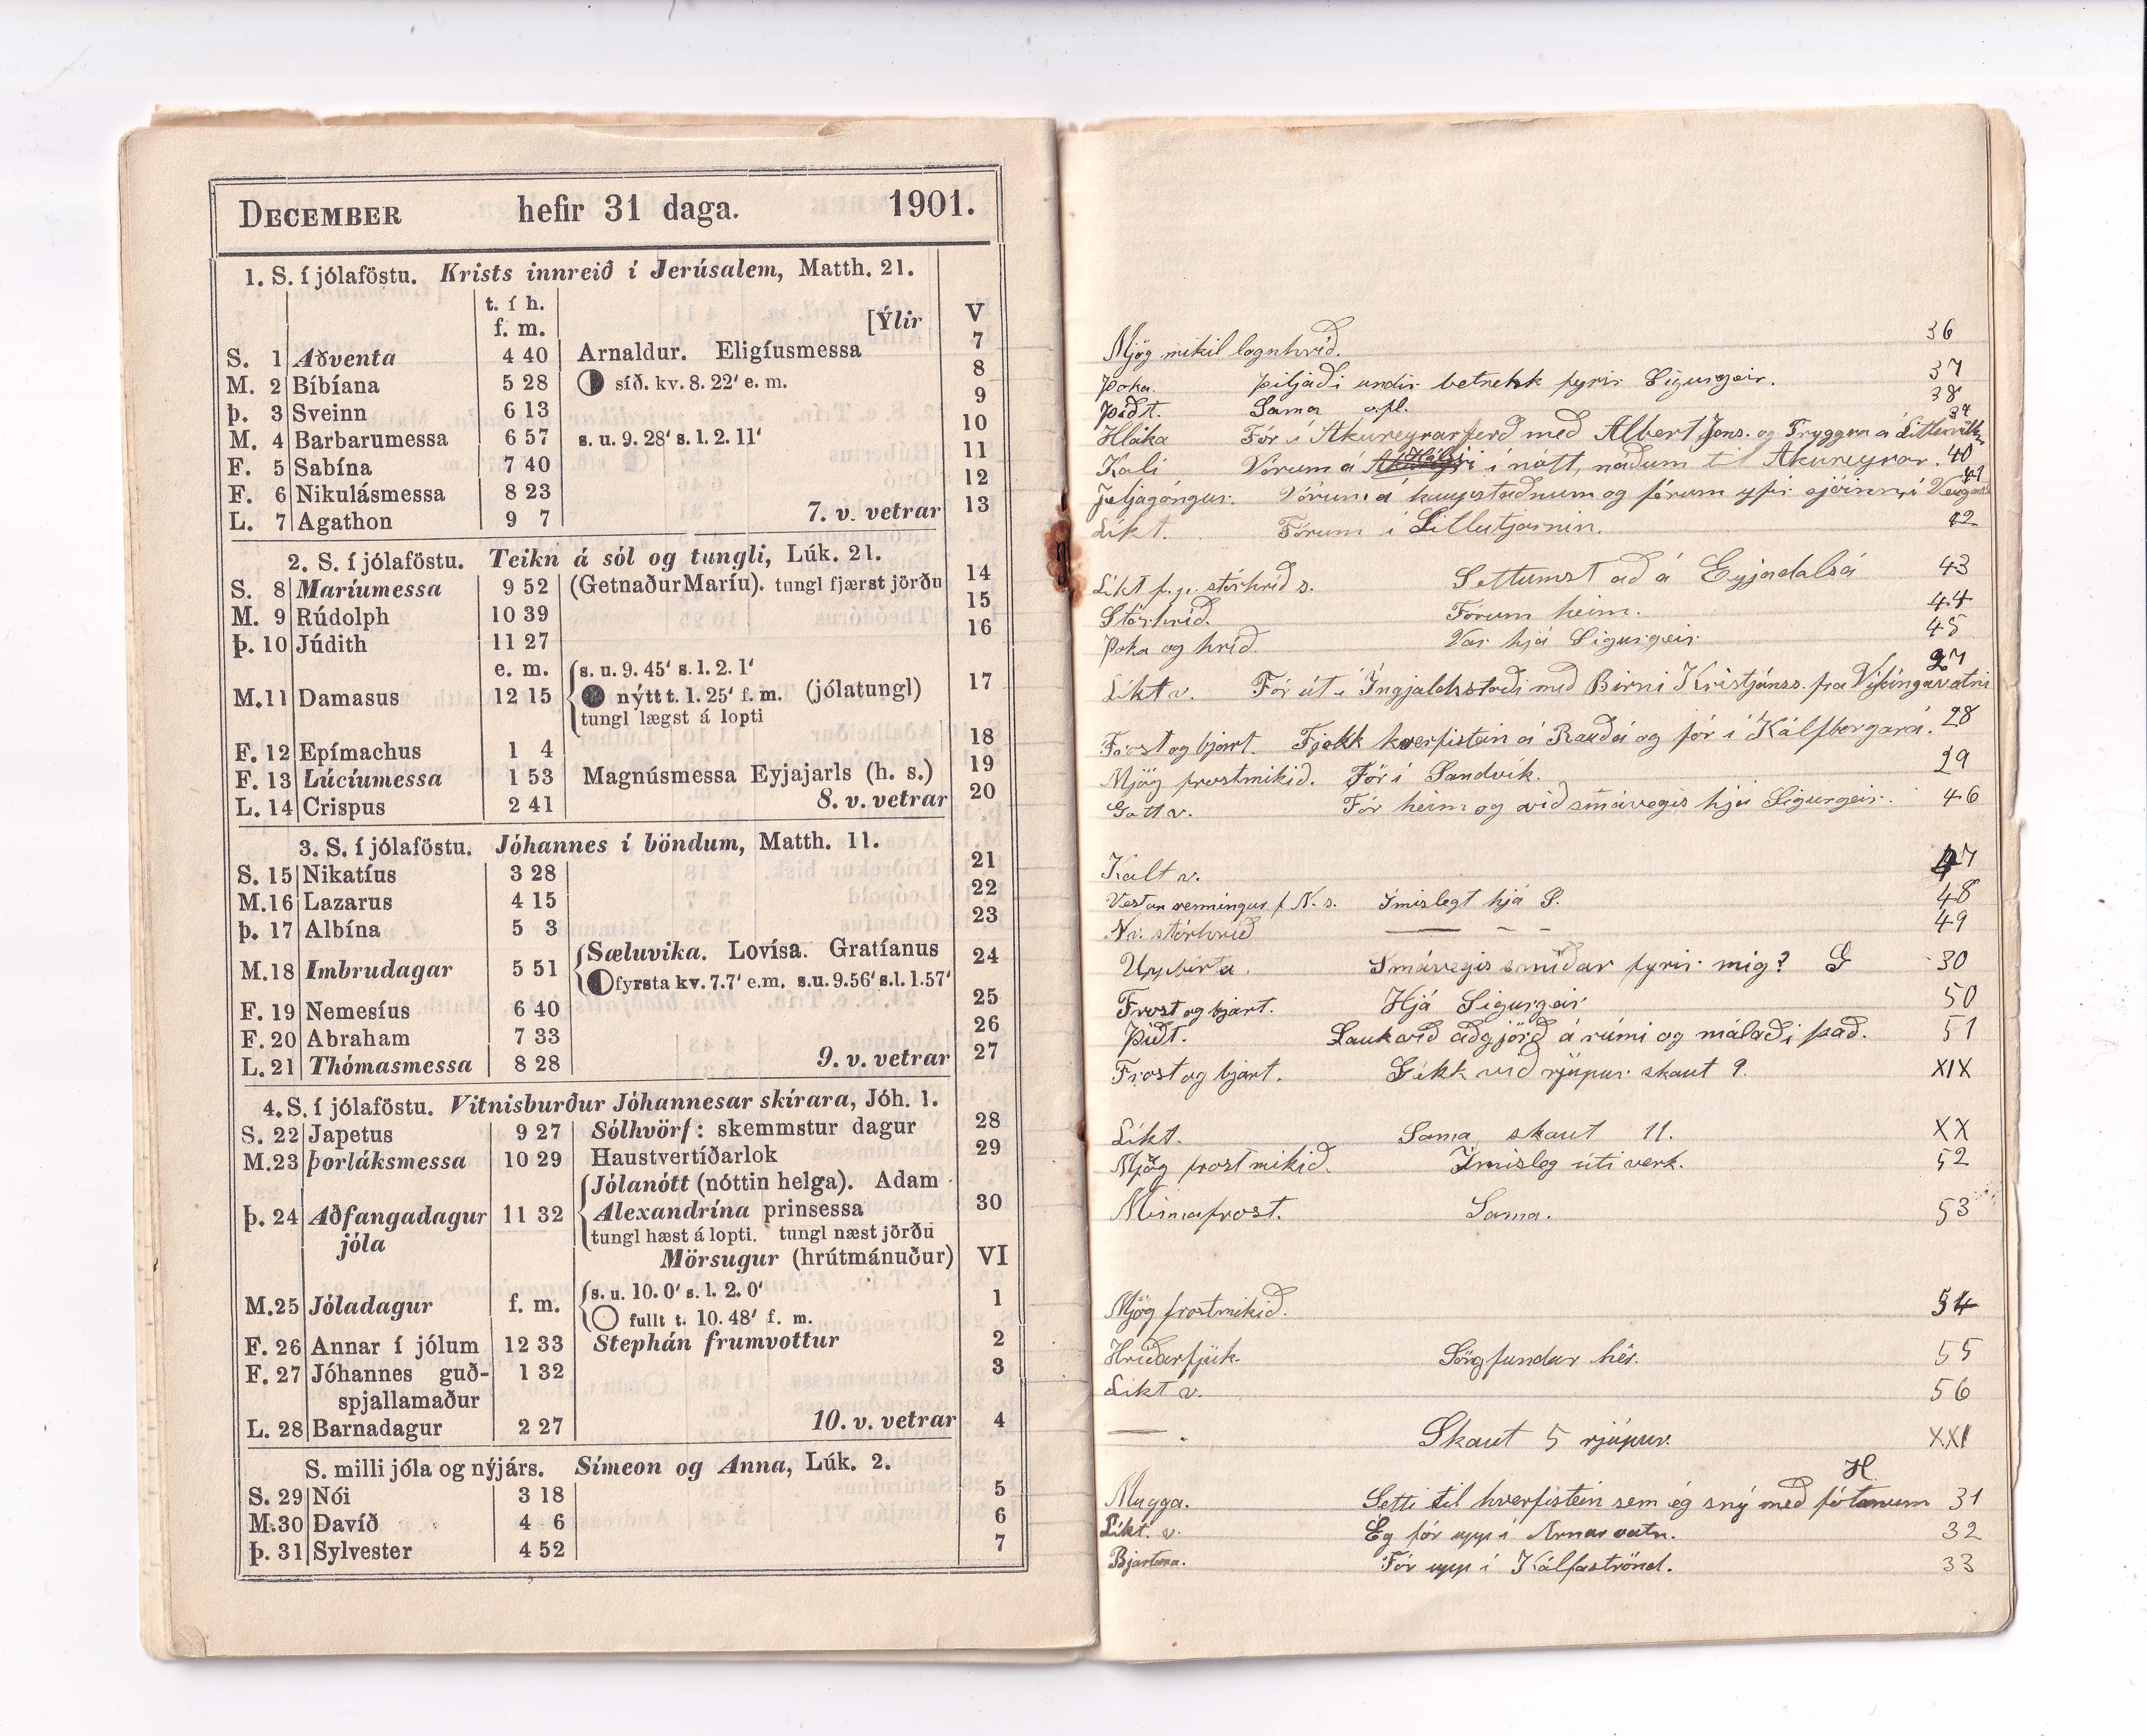 DECEMBER hefir 31 daga. 1901.
1. S. í jólaföstu. Krists innreið í Jerúsalem, Matth. 21.
t. í h.
f. m. [Ýlir V
S. 1 Aðventa 4 40 Arnaldur. Eligíusmessa 7
M. 2 Bíbíana 5 28 síð. kv. 8. 22' e. m. 8
Þ. 3 Sveinn 6 13 9
M. 4 Barbarumessa 6 57 s. u. 9. 28' s. l. 2. 11' 10
F. 5 Sabína 7 40 11
F. 6 Nikulásmessa 8 23 12
L. 7 Agathon 9 7 7. v. vetrar 13
2. S. í jólaföstu. Teikn á sól og tungli, Lúk. 21.
S. 8 Maríumessa 9 52 (Getnaður Maríu). tungl fjærst jörðu 14
M. 9 Rúdolph 10 39 15
Þ. 10 Júdith 11 27 16
e. m. s. u. 9. 45' s. l. 2. 1'
M. 11 Damasus 12 15 nýtt t. 1. 25' f. m. (jólatungl) 17
tungl lægst á lopti
F. 12 Epímachus 1 4 18
F. 13 Lúcíumessa 1 53 Magnúsmessa Eyjajarls (h. s.) 19
L. 14 Crispus 2 41 8. v. vetrar 20
3. S. í jólaföstu. Jóhannes í böndum, Matth. 11.
S. 15 Nikatíus 3 28 21
M. 16 Lazarus 4 15 22
Þ. 17 Albína 5 3 23
Sæluvika. Lovísa. Gratíanus
M. 18 Imbrudagar 5 51 24
fyrsta kv. 7. 7' e. m. s. u. 9. 56' s. l. 1. 57'
F. 19 Nemesíus 6 40 25
F. 20 Abraham 7 33 26
L. 21 Thómasmessa 8 28 9. v. vetrar 27
4. S. í jólaföstu. Vitnisburður Jóhannesar skírara, Jóh. 1.
S. 22 Japetus 9 27 Sólhvörf: skemmstur dagur 28
M. 23 Þorláksmessa 10 29 Haustvertíðarlok 29
Jólanótt (nóttin helga). Adam
Þ. 24 Aðfangadagur 11 32 Alexandrína prinsessa 30
jóla tungl hæst á lopti. tungl næst jörðu
Mörsugur (hrútmánuður) VI
s. u. 10. 0' s. l. 2. 0'
M. 25 Jóladagur f. m. 1
fullt t. 10. 48' f. m.
F. 26 Annar í jólum 12 33 Stephán frumvottur 2
F. 27 Jóhannes guð- 1 32 3
spjallamaður
L. 28 Barnadagur 2 27 10. v. vetrar 4
S. milli jóla og nýjárs. Símeon og Anna, Lúk. 2.
S. 29 Nói 3 18 5
M. 30 Davíð 4 6 6
Þ. 31 Sylvester 4 52 7
Mjög mikil lognhríð. 36
Þoka. Þiljaði undir betrekk fyrir Sigurgeir. 37
Þiðt. Sama 38
Hláka Fór í Akureyrarferð með Albert Jóns. og Tryggva á 39
Kali Vorum á Hálsi í nótt, náðum til Akureyrar. 40
Jeljagángur. Vórum á kaupstaðnum og fórum yfir sjóinn í 41
Líkt. Fórum í Litlutjarnir. 42
Líkt f.p. stórhríð s. Settumst að á Eyjadalsá 43
Stórhríð. Fórum heim. 44
Þoka og hríð Var hjá Sigurgeir. 45
Líkt v. Fór út í Ingjaldsstaði með Birni Kristjánss. frá Víkíngavatni 27
Frost og bjart. Fjekk hverfistein á Rauðá og fór í Kálfborgará. 28
Mjög frostmikið. Fór í Sandvík. 29
Gott v. Fór heim og við smávegis hjá Sigurgeir. 46
Kalt v. 47
Vestan renningur f N. s. Ímislegt hjá S. 48
Nv. stórhríð — - - 49
Uppbirta. Smávegis smíðar fyrir mig? G 30
Frost og bjart. Hjá Sigurgeir 50
Þiðt. Lauk við aðgjörð á rúmi og málaði það. 51
Frost og bjart. Gékk við rjúpur skaut 9. XIX
Líkt. Sama skaut 11. XX
Mjög frostmikið. Ímisleg úti verk. 52
Minna frost. Sama. 53
Mjög frostmikið. 54
Hríðarfjúk. Saungfundur hér. 55
Líkt v. 56
— . Skaut 5 rjúpur. XXI
H
Mugga. Setti til hverfistein sem ég sný með fótunum 31
Líkt. v. Eg fór upp í Arnarvatn. 32
Bjartara. Fór upp í Kálfaströnd. 33